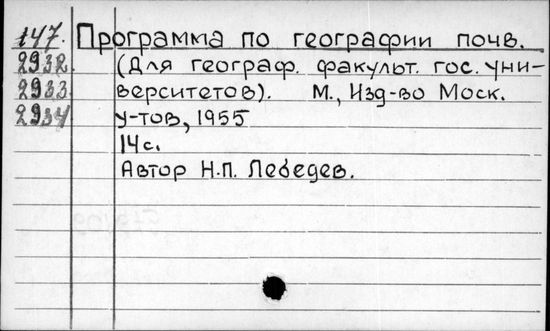 147. Программа по географии почв.
2932 (Для географ. факульт. гос. уни-
2933 верситетов). М., Изд-во Моск.
2934 у-тов, 1955
14с.
Автор Н.П. Лебедев.